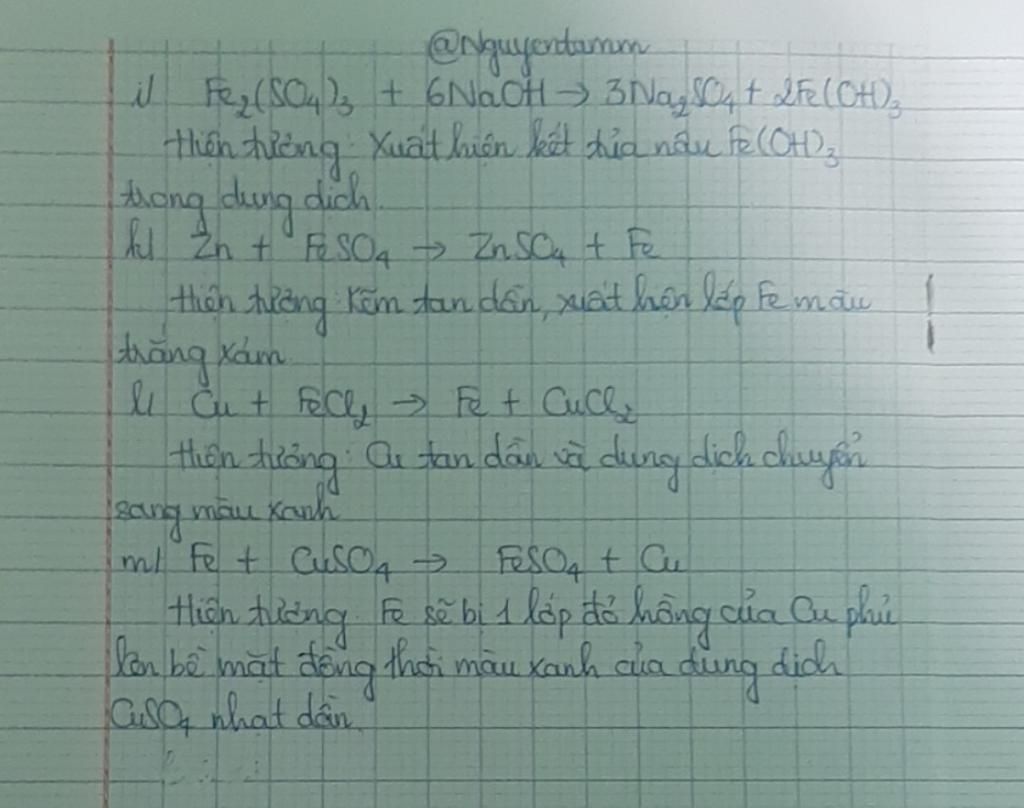 @Nguyentamm
i/ Fe₂(SO₄)₃ + 6NaOH → 3Na₂SO₄ + 2Fe(OH)₃
Hiện tượng: Xuất hiện kết tủa nâu Fe(OH)₃
trong dung dịch.
k/ Zn + FeSO₄ → ZnSO₄ + Fe
Hiện tượng: Kẽm tan dần, xuất hiện lớp Fe màu
trắng xám.
l/ Cu + FeCl₂ → Fe + CuCl₂
Hiện tượng: Cu tan dần và dung dịch chuyển
sang màu xanh
m/ Fe + CuSO₄ → FeSO₄ + Cu
Hiện tượng: Fe sẽ bị 1 lớp đỏ hồng của Cu phủ
lên bề mặt đồng thời màu xanh của dung dịch
CuSO₄ nhạt dần.